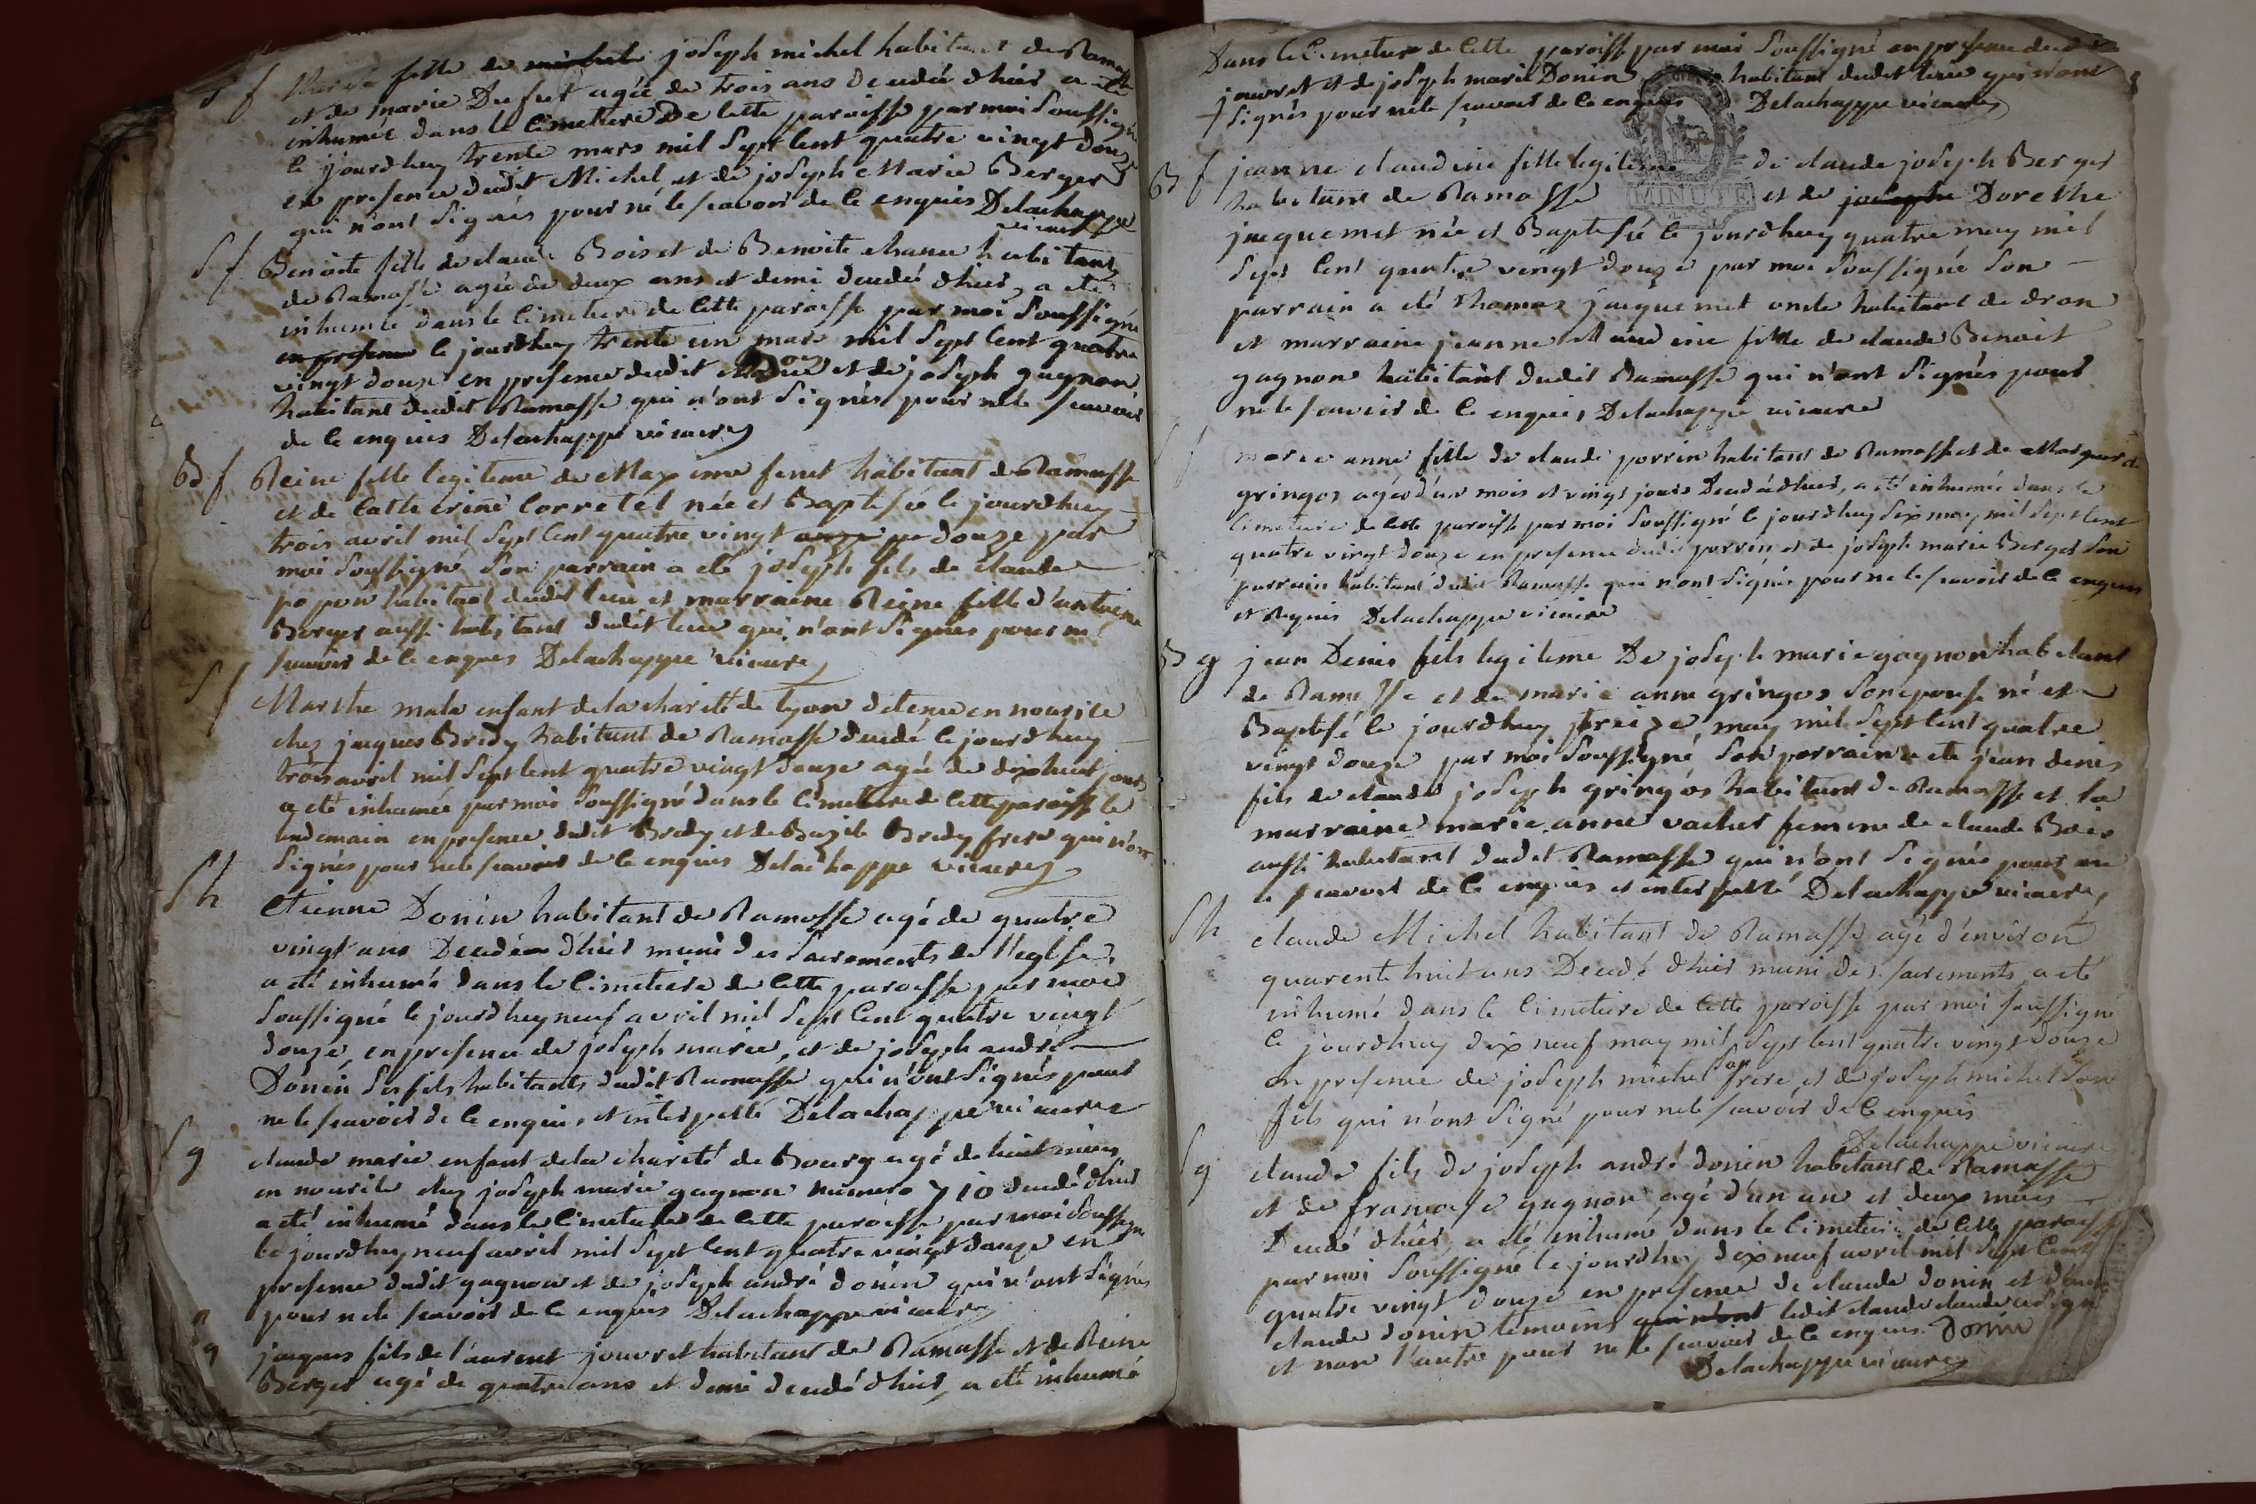 S f
fille de michel joseph michel habitant de Ramasse
et de marie Dufut agée de trois ans decedée d'hier a eté
inhumée dans le Cimetiere De Cette paroisse par moi soussigné
le jourdhuy trente mars mil Sept Cent quatre vingt douze
en presence dudit Michel et de joseph Marie Berger
qui n'ont Signés pour ne le scavoir de Ce enquis Delachappe
vicaire
S f
Benoite fille de claude Bois et de Benoite chanu habitant
de Ramasse agée de deux ans et demi decedé d'hier, a eté
inhumée dans le Cimetiere de Cette paroisse par moi soussigné
en presence le jourdhuy trente un mars mil Sept Cent quatre
vingt douze en presence dudit Bois et de joseph gagnon
habitant dudit Ramasse qui n'ont Signés pour ne le scavoir
de Ce enquis Delachappe vicaire
B f
Reine fille legiteme de Maxime feret habitant de Ramasse
et de Catherine Corretel née et Baptisée le jourdhuy
trois avril mil Sept Cent quatre vingt onze douze par
moi soussigné Son parrain a eté joseph fils de claude
popon habitant dudit lieu et marraine Reine fille d'antoine
Berger aussi habitant dudit lieu qui n'ont Signés pour ne
scavoir de Ce enquis Delachappe vicaire
S f
Marthe mata enfant de la charité de lyon detenue en nourice
chez jacques Bredy habitant de Ramasse decedé le jourdhuy
trois avril mil Sept Cent quatre vingt douze agée de dixhuit jours
a eté inhumée par moi soussigné dans le Cimetiere de Cette paroisse le
lendemain en presence dudit Bredy et de Bazile Bredy frere qui n'ont
Signés pour ne le scavoir de Ce enquis Delachappe vicaire
S h
Etienne Donin habitant de Ramasse agé de quatre
vingt ans Decedé d'hier muni des Sacrements de l'eglise,
a eté inhumé dans le Cimetiere de Cette paroisse par moi
soussigné le jourdhuy neuf avril mil Sept Cent quatre vingt
douze, en presence de joseph marie, et de joseph andré
Donin Ses fils habitants dudit Ramasse qui n'ont Signés pour
ne le scavoir de Ce enquis et interpellé Delachappe vicaire
S g
claude marie enfant de la charité de Bourg agé de huit mois,
en nourice chez joseph marie gagnon numero 710 decedé d'hier
a eté inhumé dans le Cimetiere de Cette paroisse par moi soussigné
le jourdhuy neuf avril mil Sept Cent quatre vingt douze en
presence dudit gagnon et de joseph andré donin qui n'ont Signés
pour ne le scavoir de Ce enquis Delachappe vicaire
S g
jacques fils de laurent jouvret habitant de Ramasse et de Reine
Berger agé de quatre ans et demi decedé d'hier, a eté inhumé
Dans le Cimetiere de Cette paroisse par moi soussigné en presence dudit
jouvret et de joseph marie Donin habitant dudit lieu qui n'ont
Signés pour ne le scavoir de Ce enquis Delachappe vicaire
MINUTE
B f
jeanne claudine fille legiteme de claude joseph Berger
habitant de Ramasse et de Dorethe
jacquemet née et Baptisée le jourdhuy quatre may mil
Sept Cent quatre vingt douze par moi soussigné Son
parrain a eté thomas jacquemet oncle habitant de dron
et marraine jeanne claudine fille de claude Benoit
gagnon habitant dudit Ramasse qui n'ont Signés pour
ne le scavoir de Ce enquis, Delachappe vicaire
S f
marie anne fille de claude perrin habitant de Ramasse et de Marguerite
gringos agée d'un mois et vingt jours Decedé d'hier, a eté inhumée dans le
Cimetiere de Cette paroisse par moi soussigné le jourdhuy Six may mil Sept Cent
quatre vingt douze en presence dudit perrin et de joseph marie Berger Son
parrain habitant dudit Ramasse qui n'ont Signés pour ne le scavoir de Ce enquis
et Requis Delachappe vicaire
B g
jean Denis fils legiteme De joseph marie gagnon habitant
de Ramasse et de marie anne gringos Son epouse né et
Baptisé le jourdhuy treize may mil Sept Cent quatre
vingt douze par moi soussigné, Son parrain a eté jean denis
fils de claude joseph gringos habitant de Ramasse et la
marraine marie anne vacher femme de claude Bois
aussi habitant dudit Ramasse qui n'ont Signés pour ne
le scavoir de Ce enquis et interpellé Delachappe vicaire,
S h
claude Michel habitant de Ramasse agé d'environ
quarente huit ans Decedé d'hier muni des sacrements, a eté
inhumé dans le Cimetiere de Cette paroisse par moi soussigné
le jourdhuy dix neuf may mil Sept Cent quatre vingt douze
en presence de joseph michel Son frere et de joseph michel Son
fils qui n'ont Signé pour ne le scavoir de Ce enquis
Delachappe vicaire
S g
claude fils de joseph andré donin habitant de Ramasse
et de francoise gagnon agé d'un an et deux mois
Decedé d'hier, a eté inhumé dans le Cimetiere de Cette paroisse
par moi soussigné le jourdhuy dix neuf avril mil Sept Cent
quatre vingt douze en presence de claude donin et d'autre
claude donin temoins qui n'ont ledit claude claude a Signé
et non l'autre pour ne le scavoir de Ce enquis. Donin
Delachappe vicaire